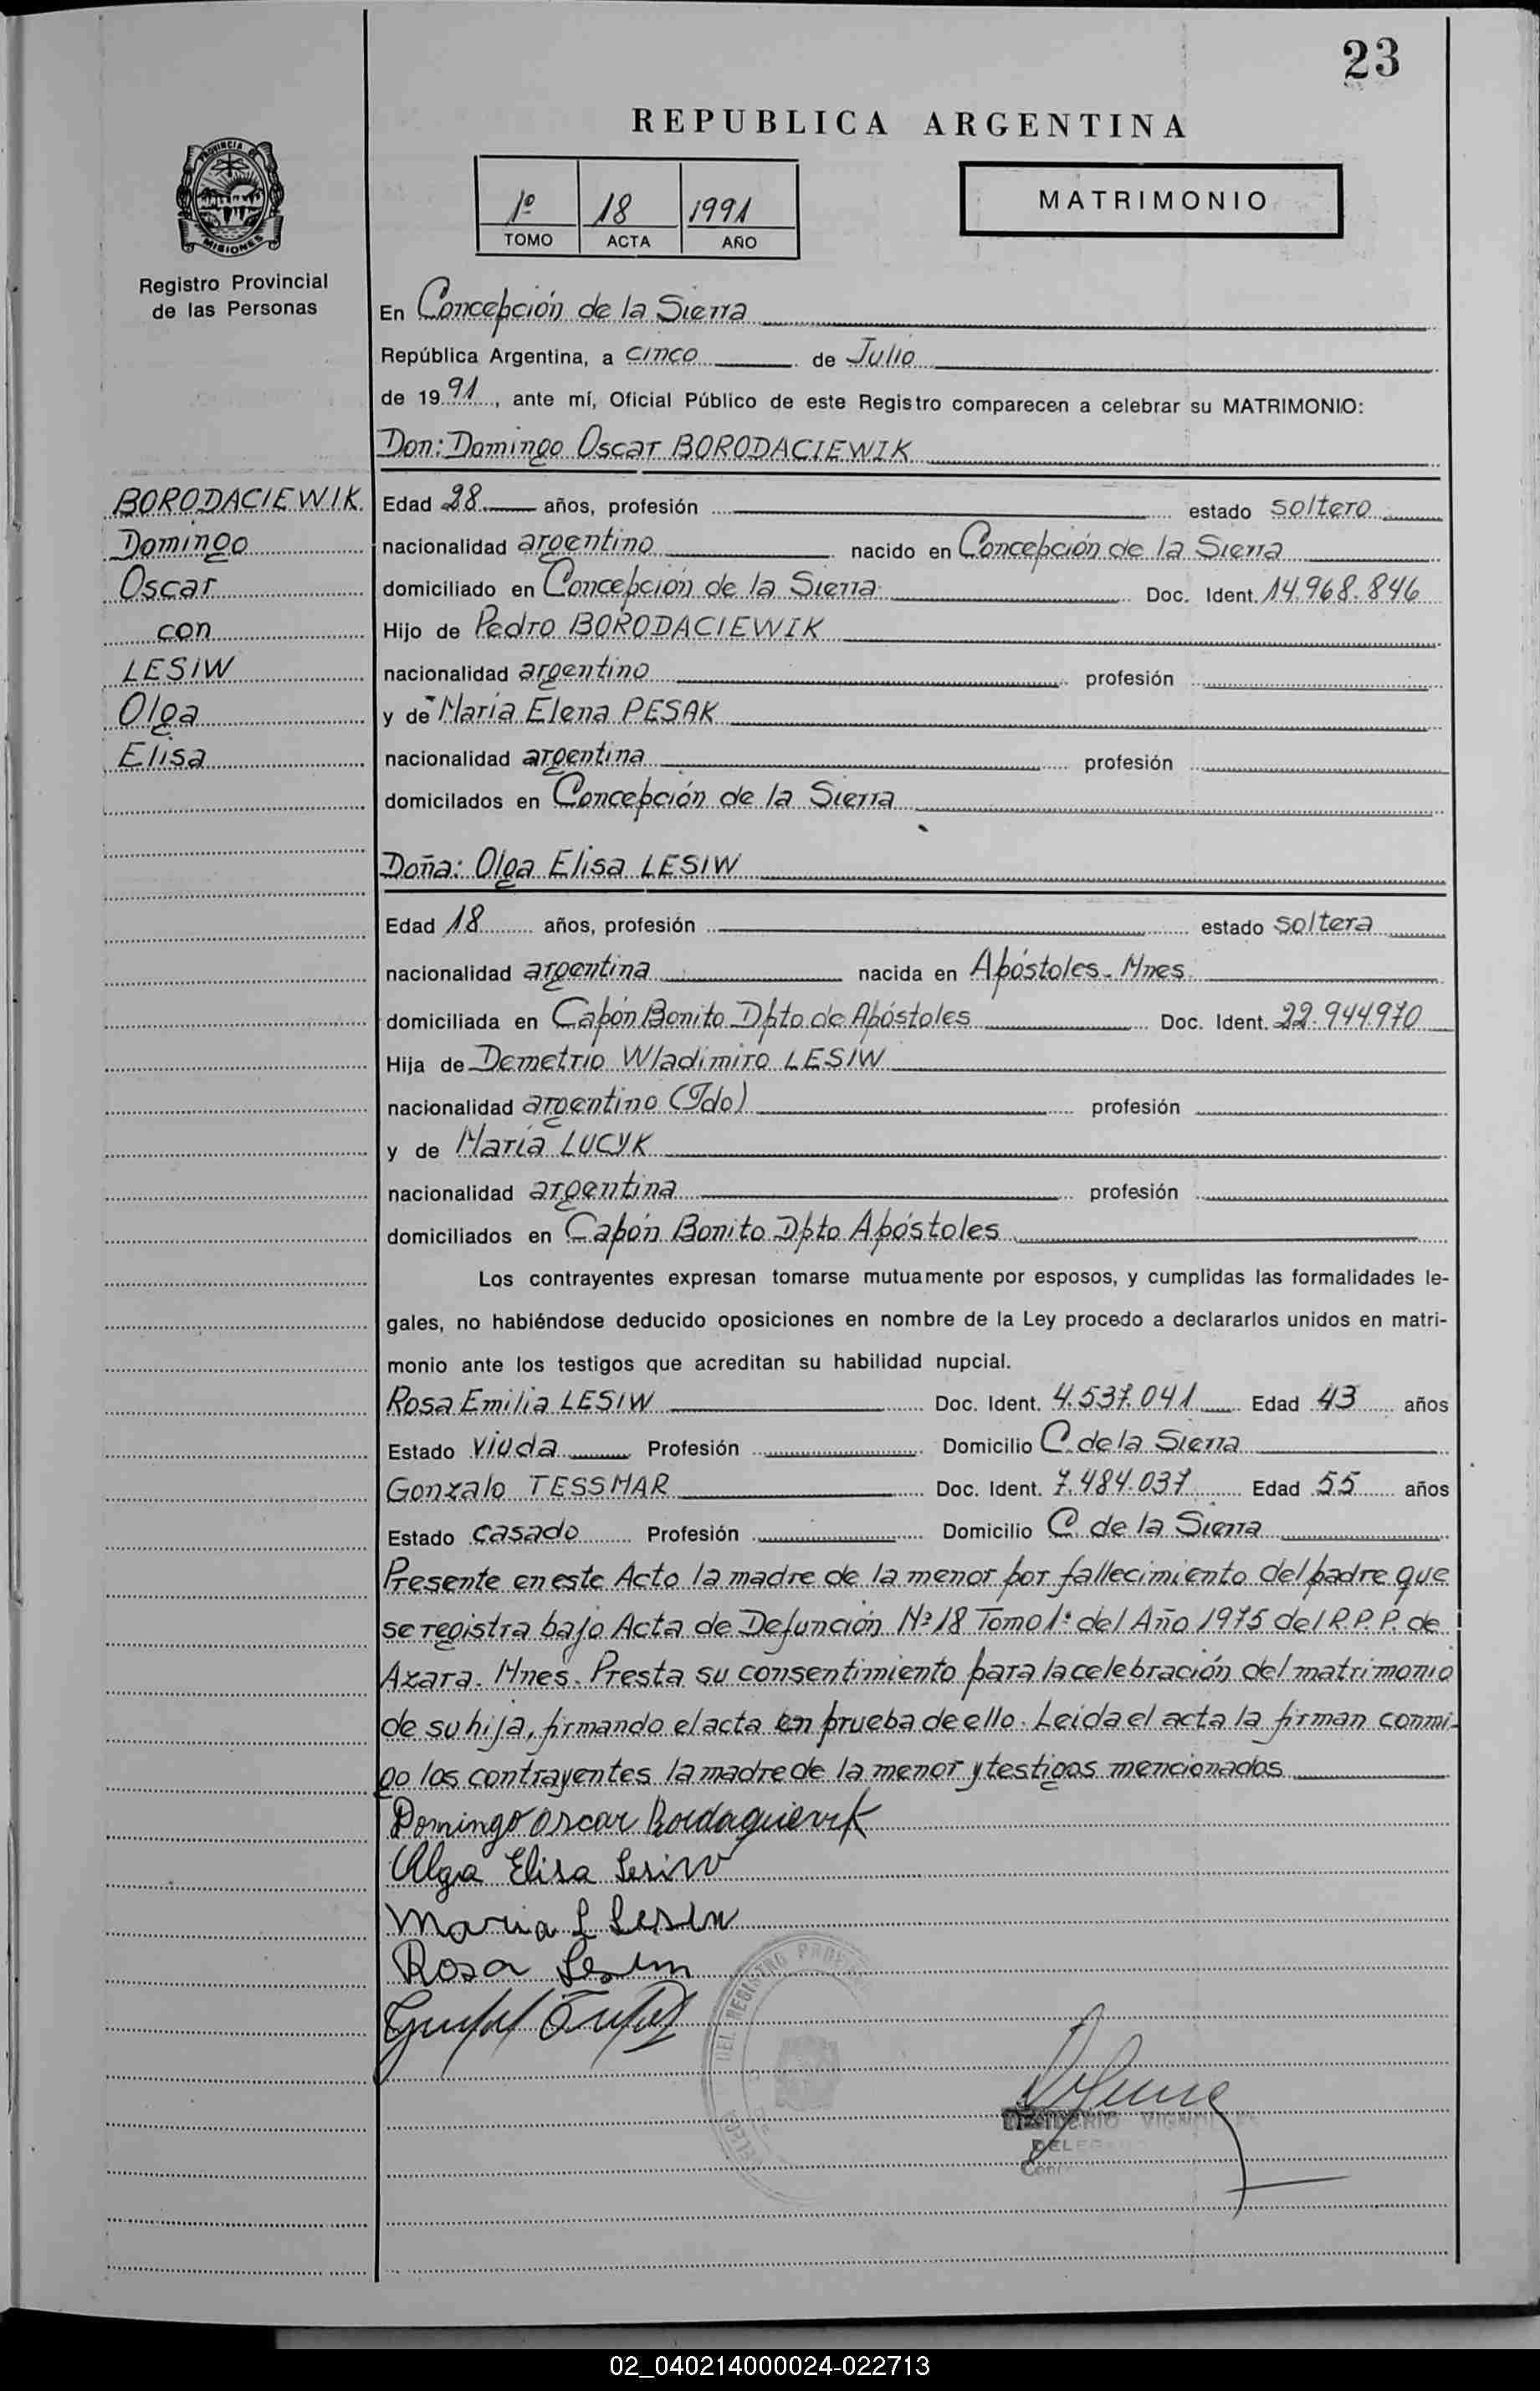 23
REPUBLICA ARGENTINA
1º 18 1991
TOMO ACTA AÑO
MATRIMONIO
PROVINCIA DE
MISIONES
Registro Provincial
de las Personas
En Concepción de la Sierra
República Argentina, a cinco de Julio
de 1991, ante mí, Oficial Público de este Registro comparecen a celebrar su MATRIMONIO:
Don: Domingo Oscar BORODACIEWIK
BORODACIEWIK
Domingo
Oscar
con
LESIW
Olga
Elisa
Edad 28 años, profesión estado soltero
nacionalidad argentino nacido en Concepción de la Sierra
domiciliado en Concepción de la Sierra Doc. Ident. 14.968.846
Hijo de Pedro BORODACIEWIK
nacionalidad argentino profesión
y de María Elena PESAK
nacionalidad argentina profesión
domicilados en Concepción de la Sierra
Doña: Olga Elisa LESIW
Edad 18 años, profesión estado soltera
nacionalidad argentina nacida en Apóstoles. Mnes
domiciliada en Capón Bonito Dpto de Apóstoles Doc. Ident. 22.944970
Hija de Demetrio Wladimiro LESIW
nacionalidad argentino (Fdo) profesión
y de María LUCYK
nacionalidad argentina profesión
domiciliados en Capón Bonito Dpto Apóstoles
Los contrayentes expresan tomarse mutuamente por esposos, y cumplidas las formalidades le-
gales, no habiéndose deducido oposiciones en nombre de la Ley procedo a declararlos unidos en matri-
monio ante los testigos que acreditan su habilidad nupcial.
Rosa Emilia LESIW Doc. Ident. 4.537.041 Edad 43 años
Estado viuda Profesión Domicilio C. de la Sierra
Gonzalo TESSMAR Doc. Ident. 7.484.037 Edad 55 años
Estado casado Profesión Domicilio C. de la Sierra
Presente en este Acto la madre de la menor por fallecimiento del padre que
se registra bajo Acta de Defunción Nº 18 Tomo 1º del Año 1975 del R.P.P. de
Azara. Mnes. Presta su consentimiento para la celebración del matrimonio
de su hija, firmando el acta en prueba de ello. Leida el acta la firman conmi-
go los contrayentes la madre de la menor y testigos mencionados
Domingo Oscar
Olga Elisa Lesiw
Maria L Lesiw
Rosa Lesiw
DEL REGISTRO
DELEG
02_040214000024-022713